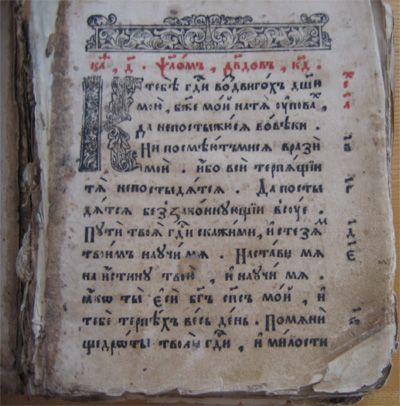 К тебѣ гдⷭ҇и воздвигохъ дш҃ꙋ
мою, бж҃е мой на тѧ ꙋповахъ,
да непостыжꙋсѧ вовѣки.
Ни посмѣютъмисѧ врази
мои. ибо вси терпѧщїи
тѧ непостыдѧтсѧ. Да посты
дѧтсѧ беззаконнꙋющїи всꙋе.
Пꙋти твоѧ гдⷭ҇и скажи ми, и стезѧмъ
твоимъ наꙋчи мѧ. Настави мѧ
на истинꙋ твою, и наꙋчи мѧ.
ꙗко ты еси бг҃ъ сп҃съ мой, и
тебе терпѣхъ весь день. Помѧни
щедроты твоѧ гдⷭ҇и, и милости